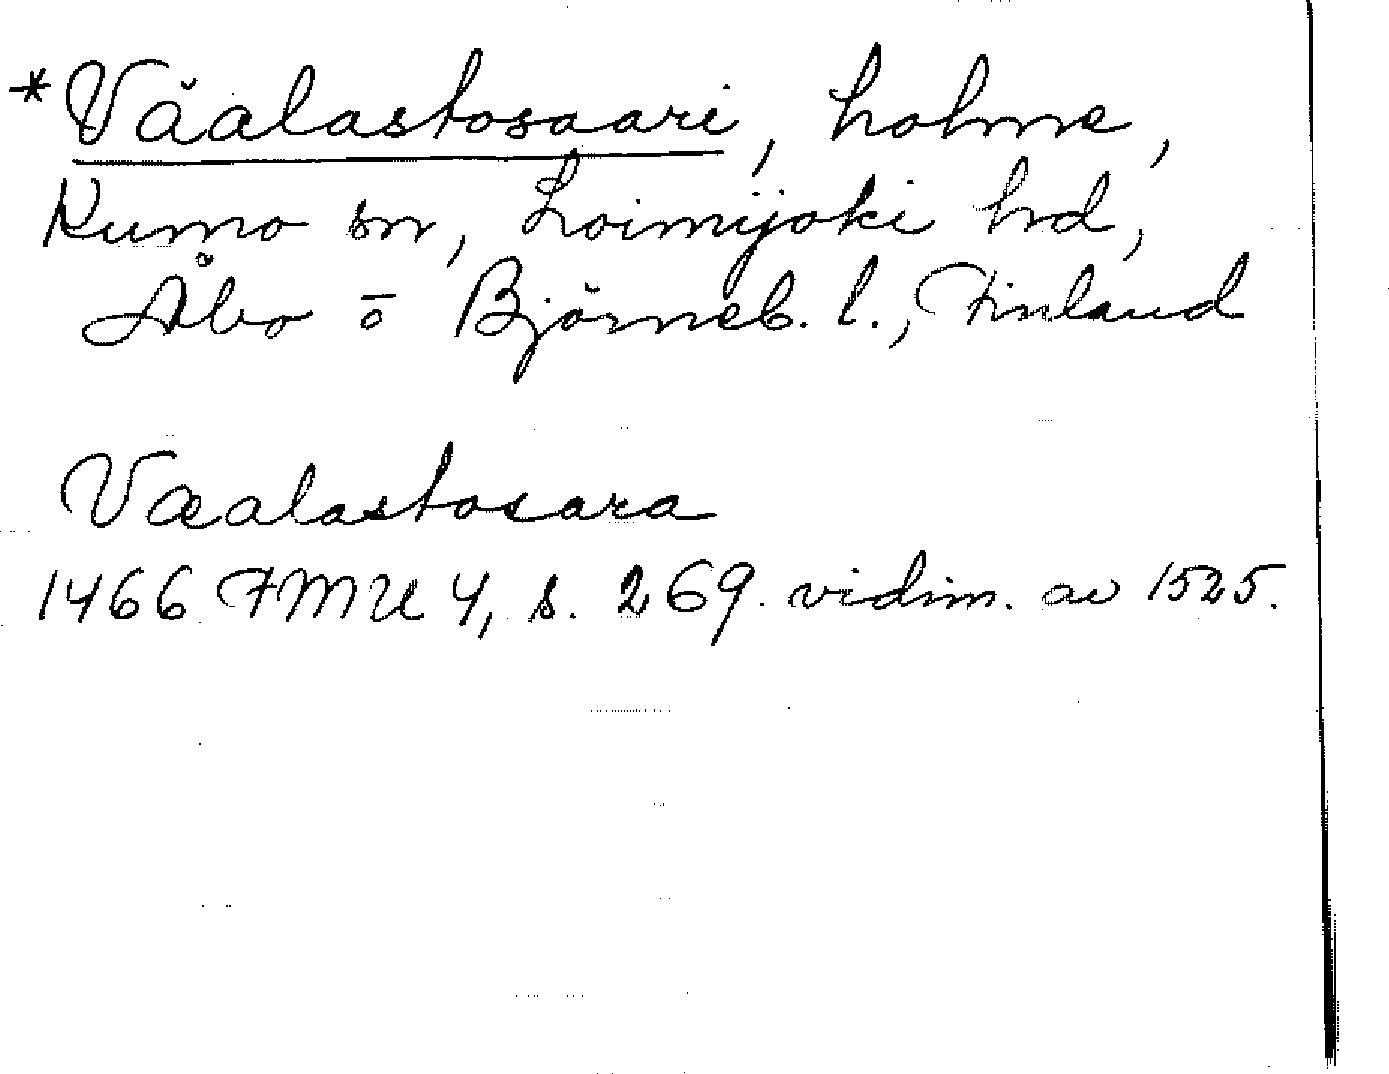 *Väalastosaari, holme,
Kumo sn, Loimijoki hd,
Åbo o Björneb. l., Finland
Væalastosara
1466 FMU 4, s. 269. vidim. av 1525.